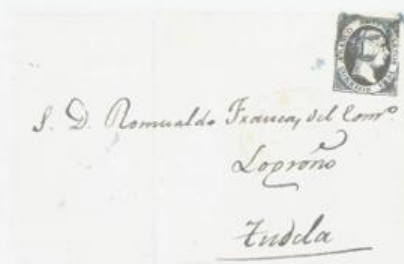 S. D. Romualdo Franca, del Com.º
Logroño
Tudela